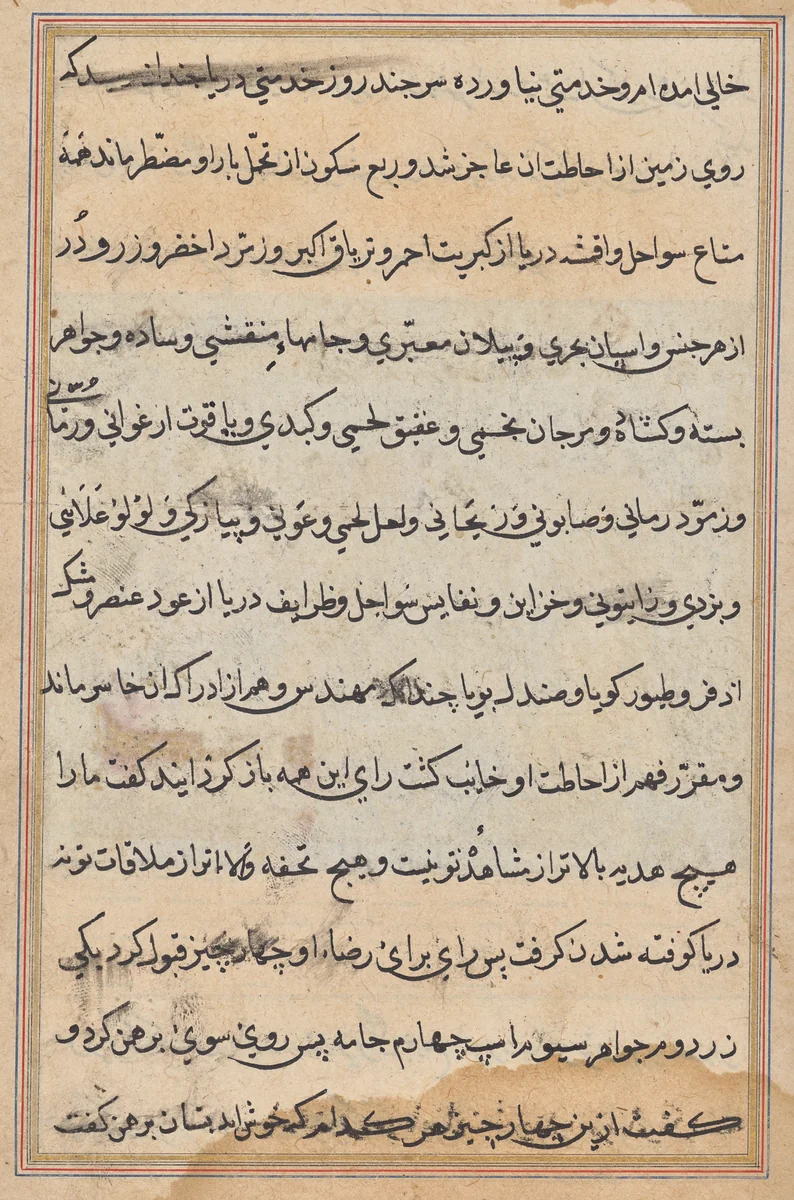 خالي امده ام و خدمتي نياورده سر جند روز خدمتي دريا جندان رسيد كه
روي زمين از احاطت ان عاجز شد و ربع مسكون از تحمّل بار او مضطر ماند همهٔ
متاع سواحل و اقمشه دريا از كبريت احمر و ترياق اكبر و زمرّد اخضر و زر و دُر
از هر جنس و اسپان بحري و پيلان معبّري و جامهاءِ منقشي و ساده و جواهر
بسته و كشاده و مرجان نخمي و عقيق لحمي و كبدي و ياقوت ارغواني و رما
وزمرّد رماني و صابوني و زيحاني و لعل لحمي و عَوني و پيازكي و لؤلؤ غلاني
و يزدي و زايتوني و خزاين و نفايس سواحل و ظرايف دريا از عود عنصر و مشك
اذفر و طيور كويا و صندل بويا چندانك مهندس وهم از ادراك ان خاسر ماند
و مقرّر فهم از احاطت او خايب كشت راي اين همه باز كردانيد كفت ما را
هيچ هديه بالاتر از مشاهدهٔ تو نيست و هيچ تحفه والاتر از ملاقات تو نه
دريا كوفته شدن كرفت پس راي براي رضاء او چهار چيز قبول كرد يكي
زر دوم جواهر سيوم اسپ چهارم جامه پس روي سوي برهمن كرد و
كفت ازين چهار چيز هر كدام كه خوش ايد بستان برهمن كفت